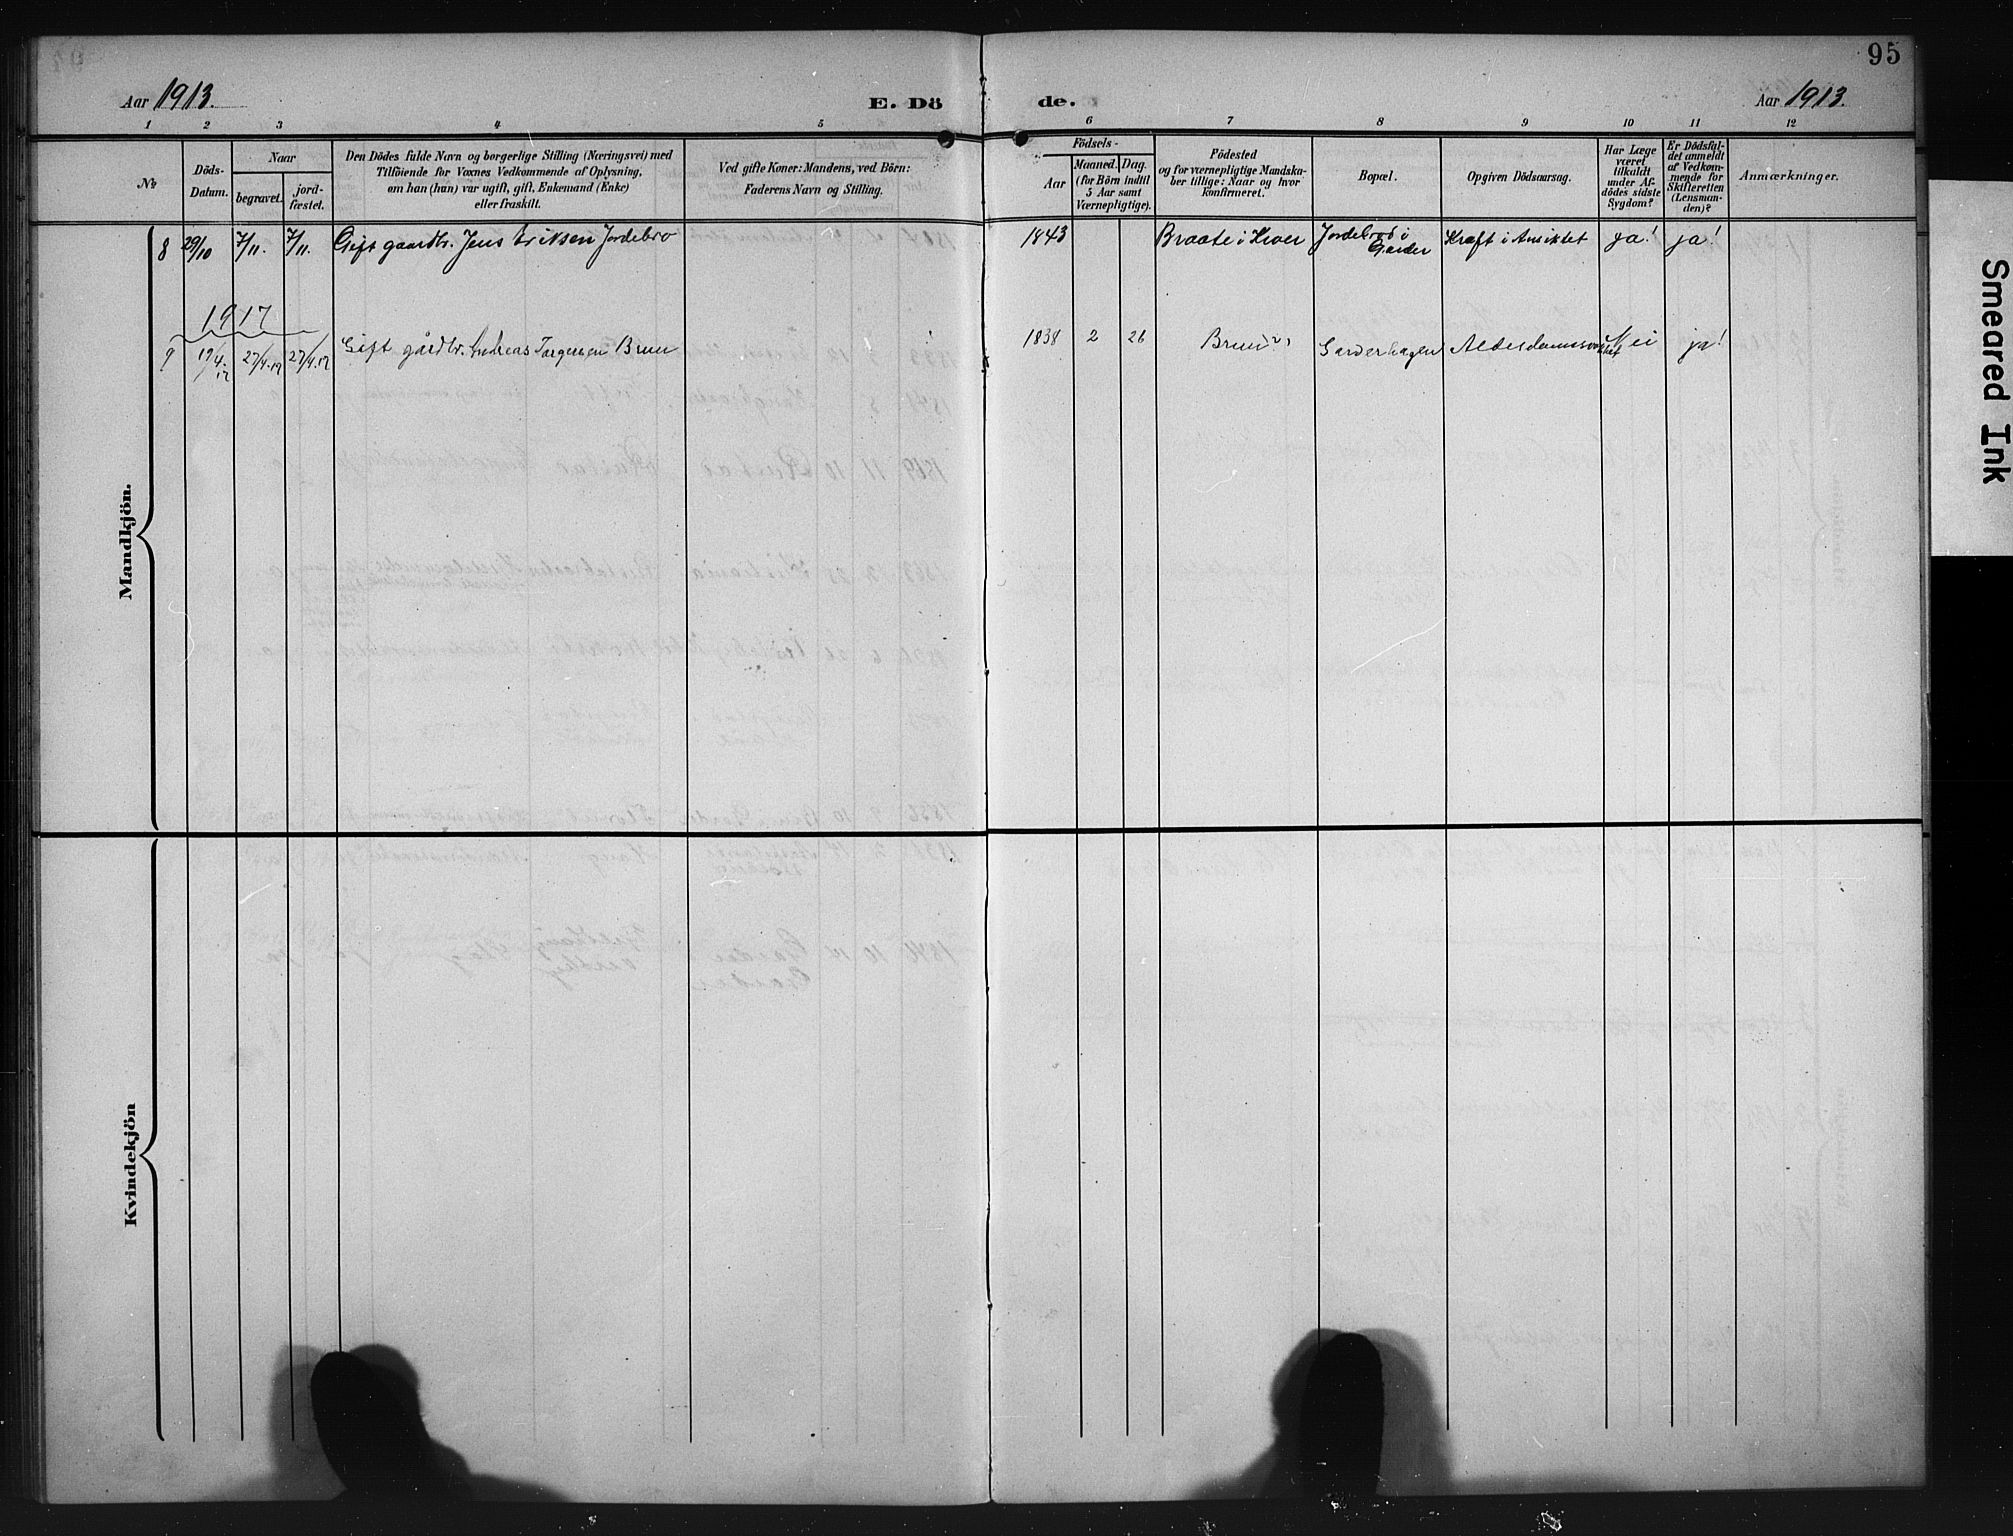 95
Aar 1913.
E. Dö de.
Aar 1913.
1 2 3 4 5 6 7 8 9 10 11 12
No
Döds-
Datum.
Naar
begravet.
jord-
fæstet.
Den Dödes fulde Navn og borgerlige Stilling (Næringsvei) med
Tilföiende for Voxnes Vedkommende af Oplysning,
om han (hun) var ugift, gift, Enkemand (Enke)
eller fraskilt.
Ved gifte Koner: Mandens, ved Börn:
Faderens Navn og Stilling.
Födsels-
Aar
Maaned. Dag.
(for Börn indtil
5 Aar samt
Værnepligtige).
Födested
og for værnepligtige Mandska-
ber tillige: Naar og hvor
konfirmeret.
Bopæl.
Opgiven Dödsaarsag.
Har Læge
været
tilkaldt
under Af-
dödes sidste
Sygdom?
Er Dödsfal-
det anmeldt
af Vedkom-
mende for
Skifteretten
(Lensman-
den)?
Anmærkninger.
Mandkjön.
8 29/10 7/11. 7/11. Gift gaardbr. Jens Eriksen Jordebro 1843 Braate i Kroer Jordebro i Garder Kræft i Ansiktet ja! ja!
1917
9 19/4.17 27/4.17 27/4.17 Gift gårdbr. Andreas Torgersen Brun 1838 2 26 Brun Garderhagen Alderdomssvakhet Nei ja!
Kvindekjön
Smeared Ink